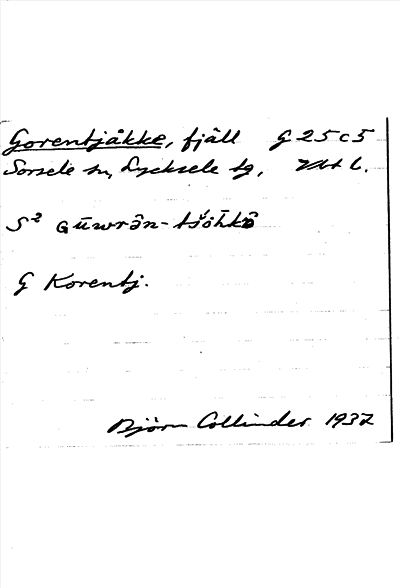 Gorentjåkke, fjäll G 25 c 5
Sorsele sn, Lycksele tg, Vbt l.
S² Gūwrân-tšå̄hkô
G Korentj.
Björn Collinder 1937